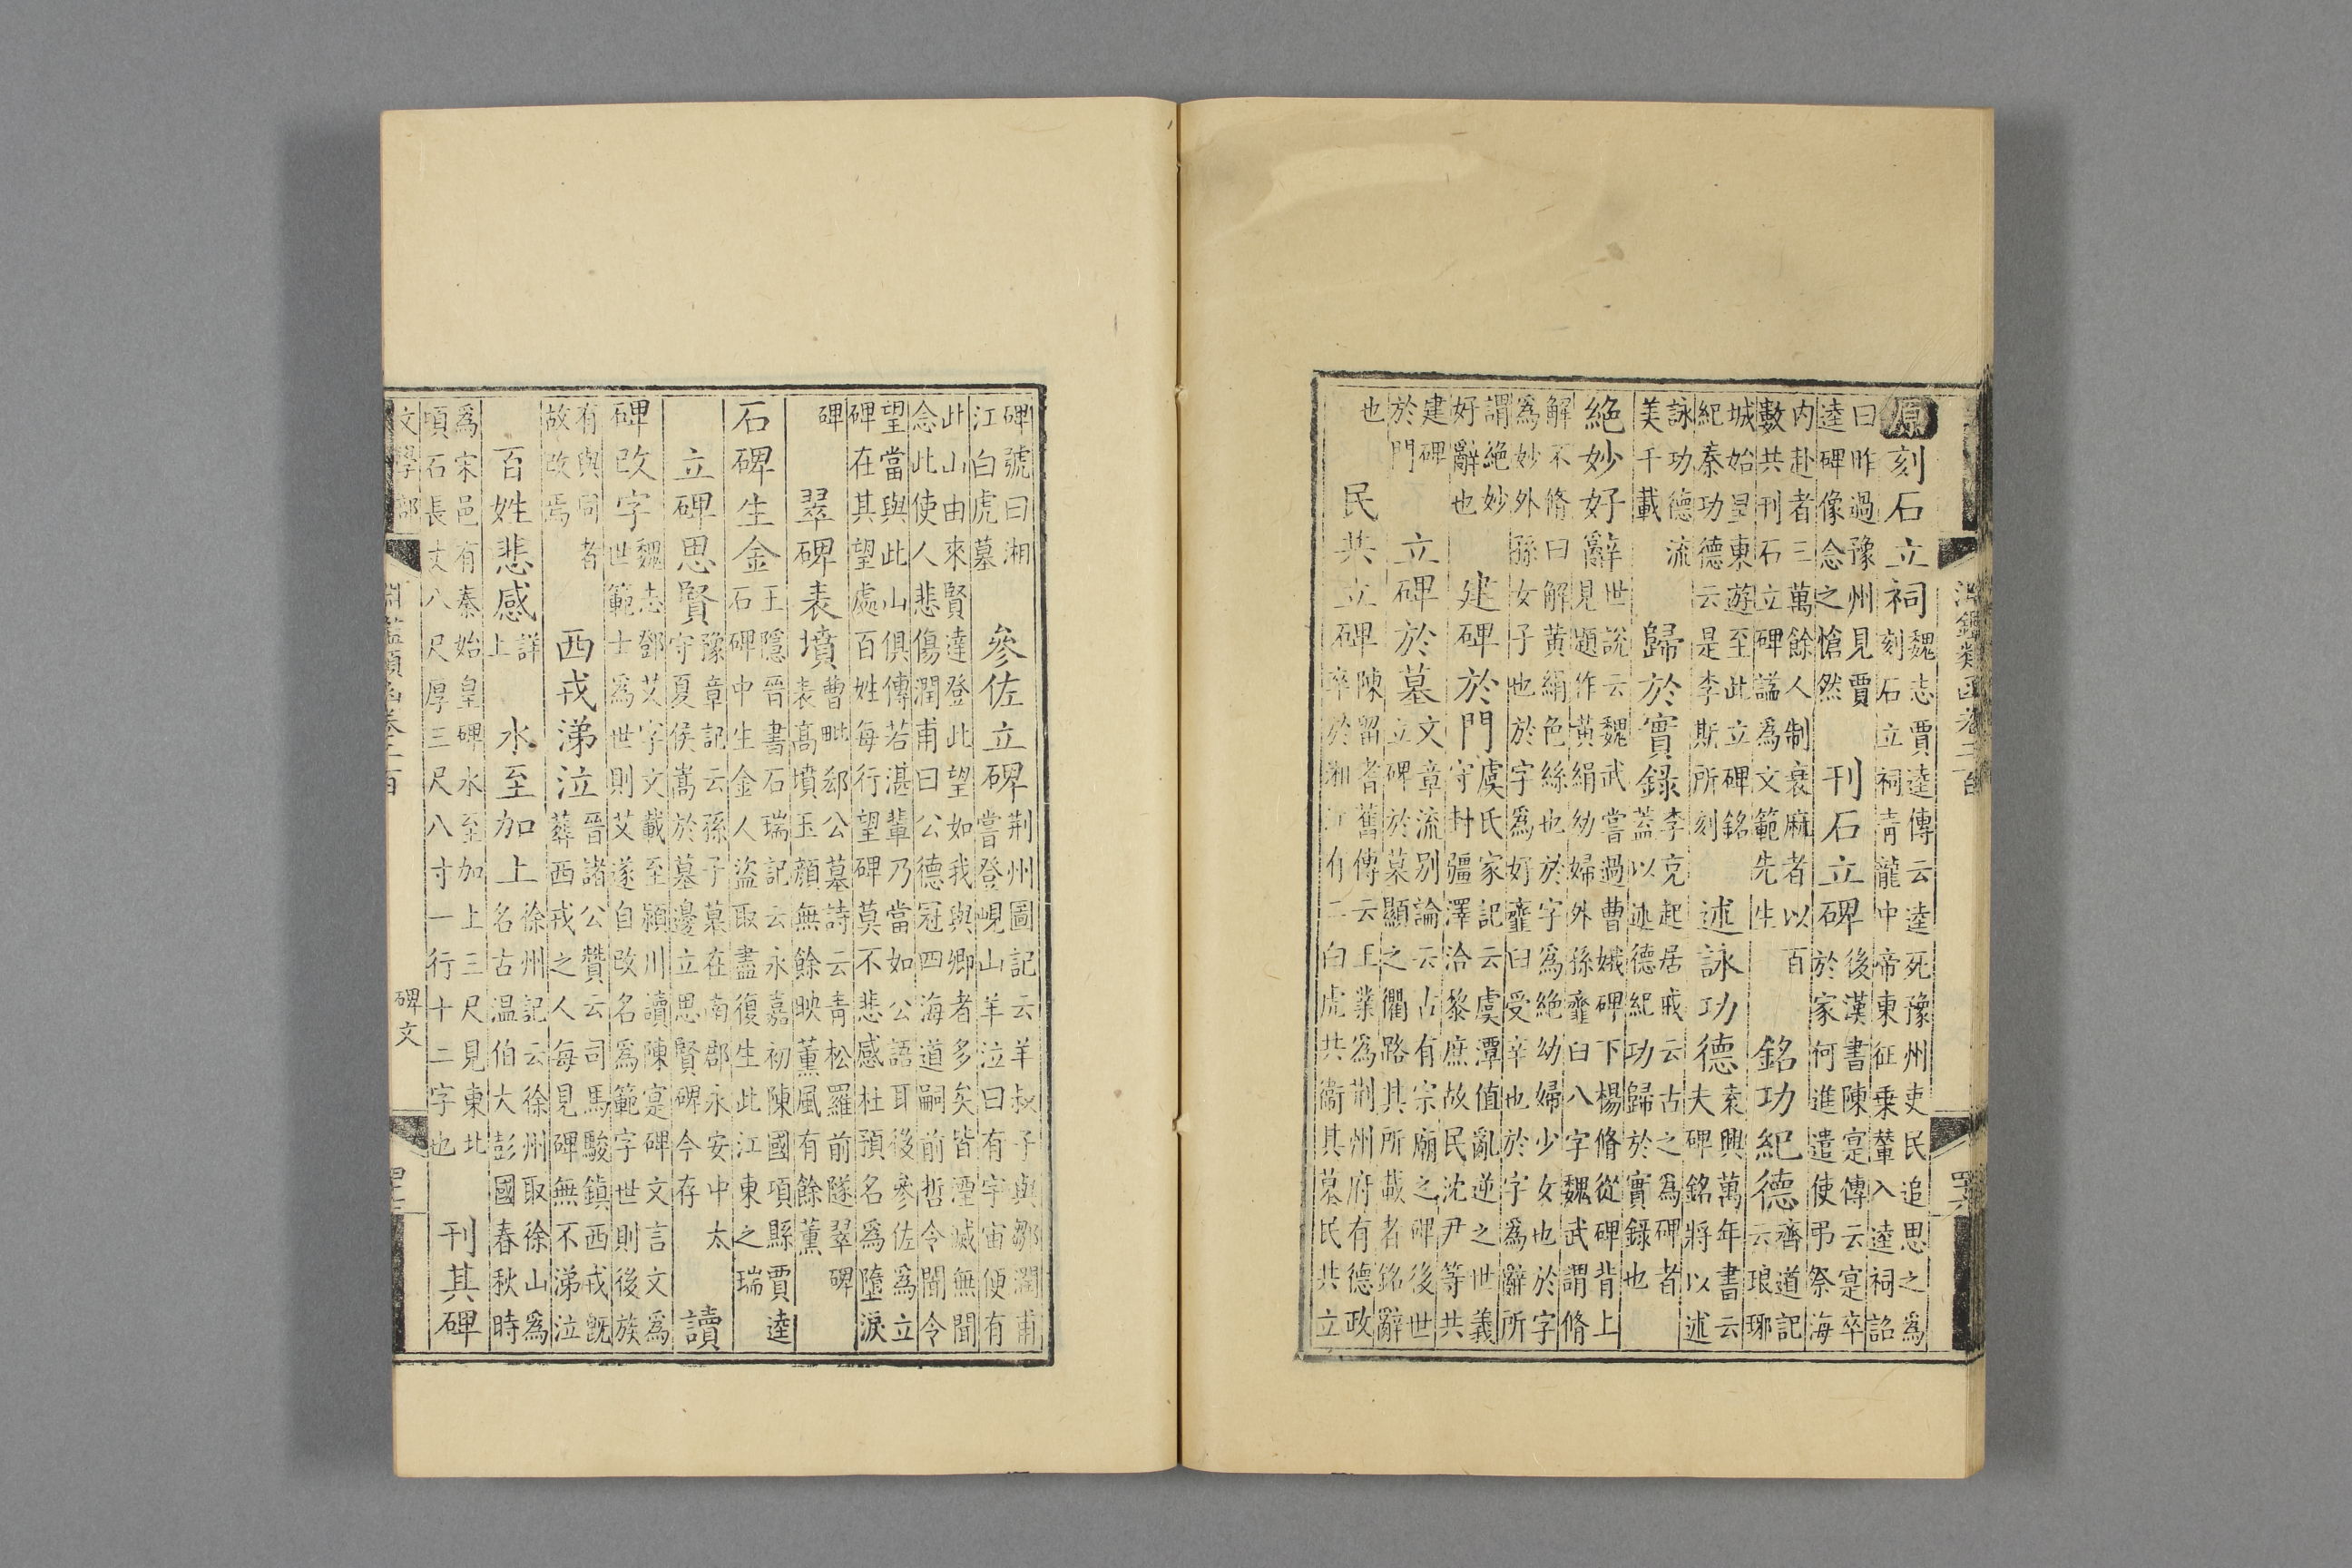 淵鑑類函卷二百
原刻石立祠
魏志賈逵傳云逵死豫州吏民追思之爲
刻石立祠青龍中帝東征乗輦入逵祠詔
曰昨過豫州見賈
逵碑像念之愴然
刊石立碑
後漢書陳寔傳云寔卒
於家何進遣使弔祭海
内赴者三萬餘人制衰麻者以百
數共刊石立碑諡爲文範先生
銘功紀德
齊道記
云琅琊
城始皇東遊至此立碑銘
紀秦功德云是李斯所刻
述詠功德
袁興萬年書云
夫碑銘將以述
詠功德流
美千載
歸於實錄
李克起居戒云古之爲碑者
蓋以述德紀功歸於實錄也
絶妙好辭
世說云魏武嘗過曹娥碑下楊脩從碑背上
見題作黄絹幼婦外孫虀臼八字魏武謂脩
解不脩曰解黄絹色絲也於字爲絶幼婦少女也於字
爲妙外孫女子也於字爲好虀臼受辛也於字爲辭所
謂絶妙
好辭也
建碑於門
虞氏家記云虞潭值亂逆之世義
守封疆澤洽黎庶故民沈尹等共
建碑
於門
立碑於墓
文章流别論云古有宗廟之碑後世
立碑於墓顯之衢路其所載者銘辭
也
民共立碑
陳留耆舊傳云王業爲荆州府有德政
卒於湘江有二白虎共衞其墓民共立
碑號曰湘
江白虎墓
參佐立碑
荆州圖記云羊叔子與鄒潤甫
嘗登峴山羊泣曰有宇宙便有
此山由來賢達登此望如我與卿者多矣皆湮滅無聞
念此使人悲傷潤甫曰公德冠四海道嗣前哲令聞令
望當與此山俱傳若湛輩乃當如公語耳後參佐爲立
碑在其望處百姓每行望碑莫不悲感杜預名爲墮淚
碑
翠碑表墳
曹毗郄公墓詩云青松羅前隧翠碑
表高墳玉顔無餘映薰風有餘薰
石碑生金
王隱晉書石瑞記云永嘉初陳國項縣賈逵
石碑中生金人盜取盡復生此江東之瑞
立碑思賢
豫章記云孫子墓在南郡永安中太
守夏侯嵩於墓邊立思賢碑今存
讀
碑改字
魏志鄧艾字文載至潁川讀陳寔碑文言文爲
世範士爲世則艾遂自改名爲範字世則後族
有與同者
故改焉
西戎涕泣
晉諸公贊云司馬駿鎮西戎旣
葬西戎之人每見碑無不涕泣
百姓悲感
詳
上
水至加上
徐州記云徐州取徐山爲
名古温伯大彭國春秋時
爲宋邑有秦始皇碑水至加上三尺見東北
項石長丈八尺厚三尺八寸一行十二字也
刊其碑
文學部
淵鑑類函卷二百
碑文